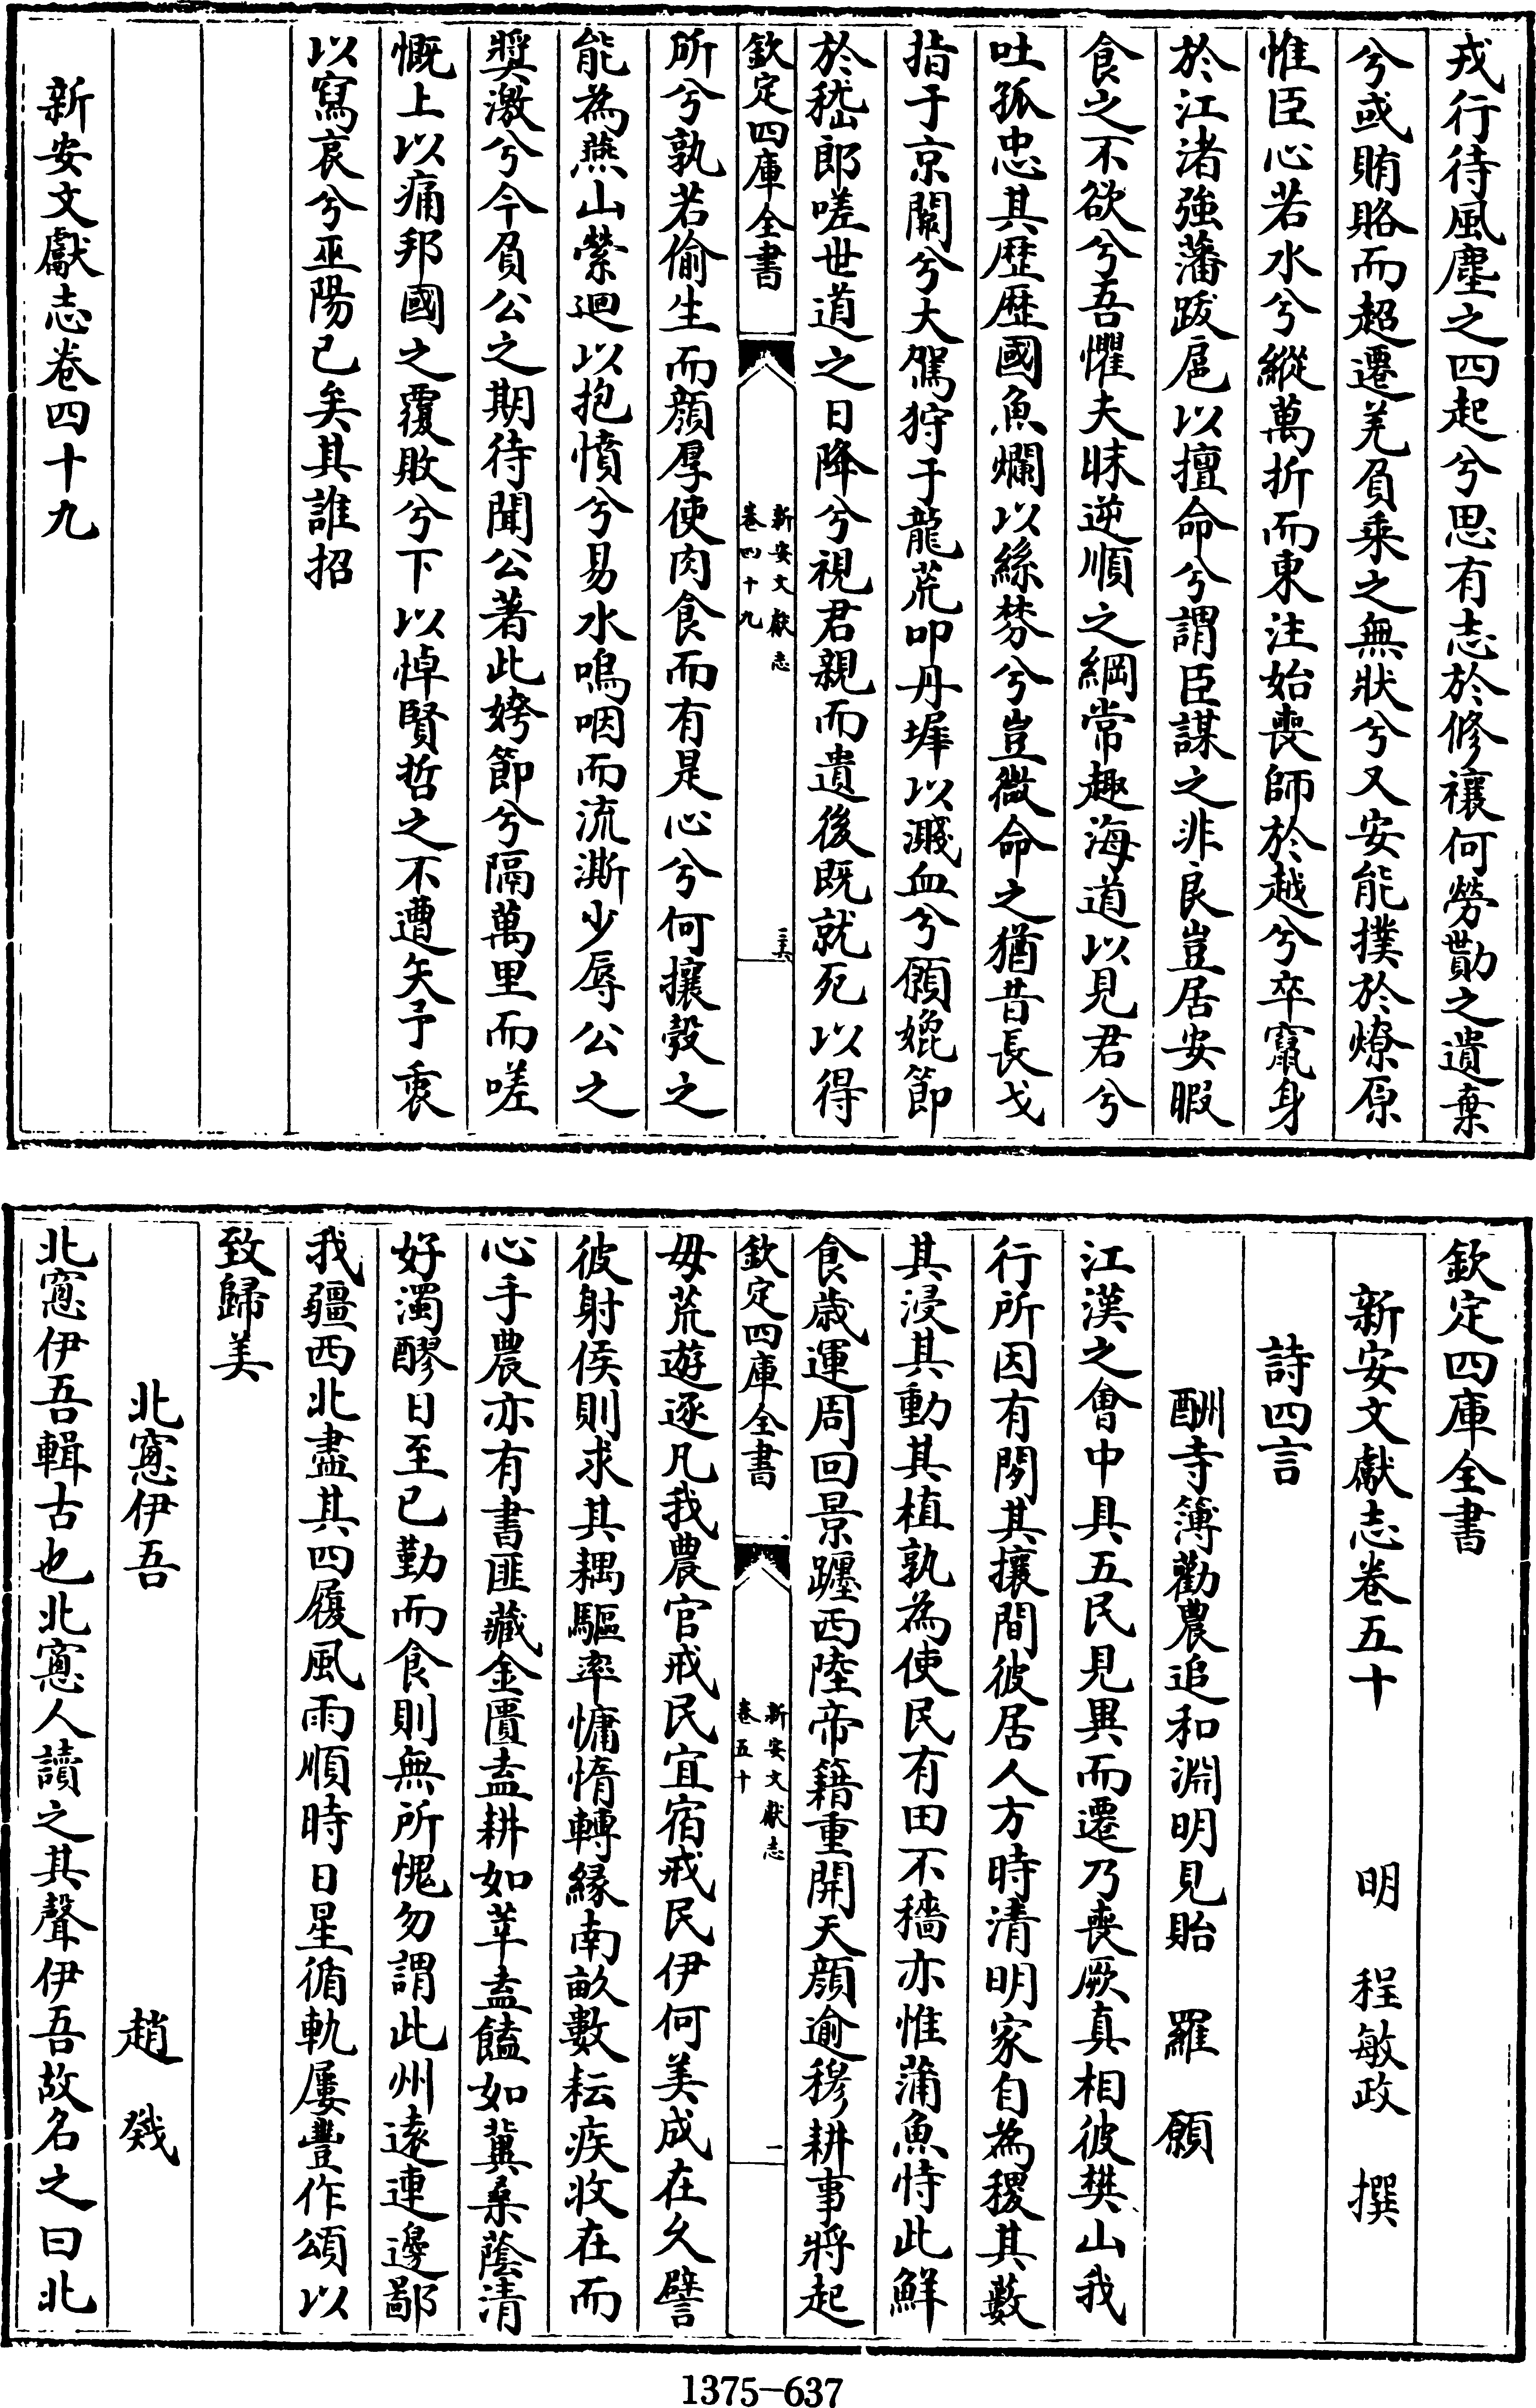 戎行待風塵之四起兮思有志於修禳何勞勩之遺棄
兮或賄賂而超遷羌負乘之無狀兮又安能撲於燎原
惟臣心若水兮縱萬折而東注始喪師於越兮卒竄身
於江渚強藩跋扈以擅命兮謂臣謀之非良豈居安暇
食之不欲兮吾懼夫昧逆順之綱常趣海道以見君兮
吐孤忠其歴歴國魚爛以絲棼兮豈微命之猶昔長戈
指于京闕兮大駕狩于龍荒叩丹墀以濺血兮願媲節
於嵇郎嗟世道之日降兮視君親而遺後既就死以得
欽定四庫全書
新安文獻志
卷四十九
三六
所兮孰若偷生而顔厚使肉食而有是心兮何攘殽之
能為燕山縈迴以抱憤兮易水嗚咽而流澌少辱公之
奬激兮今負公之期待聞公著此姱節兮隔萬里而嗟
慨上以痛邦國之覆敗兮下以悼賢哲之不遭矢予衷
以寫哀兮巫陽已矣其誰招
新安文獻志卷四十九
欽定四庫全書
新安文獻志卷五十
明 程敏政 撰
詩四言
酬寺簿勸農追和淵明見貽 羅 願
江漢之會中具五民見異而遷乃喪厥真相彼樊山我
行所因有閱其攘間彼居人方時清明家自為稷其藪
其浸其動其植孰為使民有田不穡亦惟蒲魚恃此鮮
食歳運周回景躔西陸帝籍重開天顔逾穆耕事將起
欽定四庫全書
新安文獻志
卷五十
一
毋荒遊逐凡我農官戒民宜宿戒民伊何美成在久譬
彼射侯則求其耦驅率慵惰轉緣南畝數耘疾收在而
心手農亦有書匪藏金匱盍耕如莘盍饁如冀桑蔭清
好濁醪日至已勤而食則無所愧勿謂此州遠連邊鄙
我疆西北盡其四履風雨順時日星循軌屢豐作頌以
致歸美
北窻伊吾
趙 㦤
北窻伊吾輯古也北窻人讀之其聲伊吾故名之曰北
1375-637